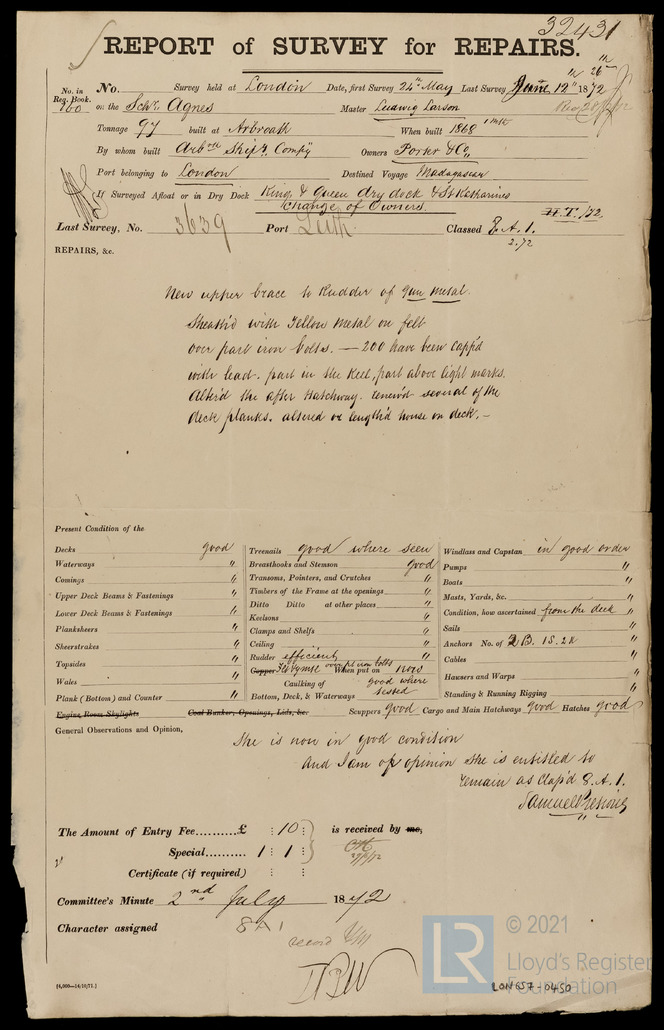 32431
REPORT of SURVEY for REPAIRS.
No. in Reg. Book. No. Survey held at London Date, first Survey 24th May Last Survey June 12th 26th 1872
100 on the Schr. Agnes Master Ludwig Larson
Tonnage 97 built at Arbroath When built 1868
By whom built Arboth Shipg. Compy Owners Porter & Co.
Port belonging to London Destined Voyage Madagascar
If Surveyed Afloat or in Dry Dock King & Queen dry dock & St Katharines
Change of Owners. H.T. /72.
Last Survey, No. 3639 Port Leith Classed 8 A. 1.
2.72
REPAIRS, &c.
New upper brace to Rudder of gun metal.
Sheath'd with Yellow Metal on felt
over part iron bolts. — 200 have been capp'd
with lead. part in the Keel, part above light marks.
Alter'd the after Hatchway. renew'd several of the
deck planks. altered or length'd house on deck. -
Present Condition of the
Decks good Treenails good where seen Windlass and Capstan in good order
Waterways " Breasthooks and Stemson good Pumps "
Comings " Transoms, Pointers, and Crutches " Boats "
Upper Deck Beams & Fastenings " Timbers of the Frame at the openings " Masts, Yards, &c. "
Lower Deck Beams & Fastenings " Ditto Ditto at other places " Condition, how ascertained from the deck "
Planksheers " Keelsons " Sails "
Sheerstrakes " Clamps and Shelfs " Anchors No. of 2 B. 1S. 2K "
Topsides " Ceiling " Cables "
Wales " Rudder efficient Hawsers and Warps "
Plank (Bottom) and Counter " Copper F & Y M over pt iron bolts When put on now Standing & Running Rigging "
Caulking of Bottom, Deck, & Waterways good where tested
Engine Room Skylights Coal Bunker, Openings, Lids, &c. Scuppers good Cargo and Main Hatchways good Hatches good
General Observations and Opinion,
She is now in good condition
And I am of opinion she is entitled to
remain as Clap'd 8. A. 1.
The Amount of Entry Fee..........£ : 10 : is received by me,
Special.......... 1 : 1 :
Certificate (if required) : :
Committee's Minute 2nd July 1872
Character assigned 8 A 1
record
[4,000—14/10/71.]
LR © 2021
Lloyd's Register
Foundation
LON657-0450